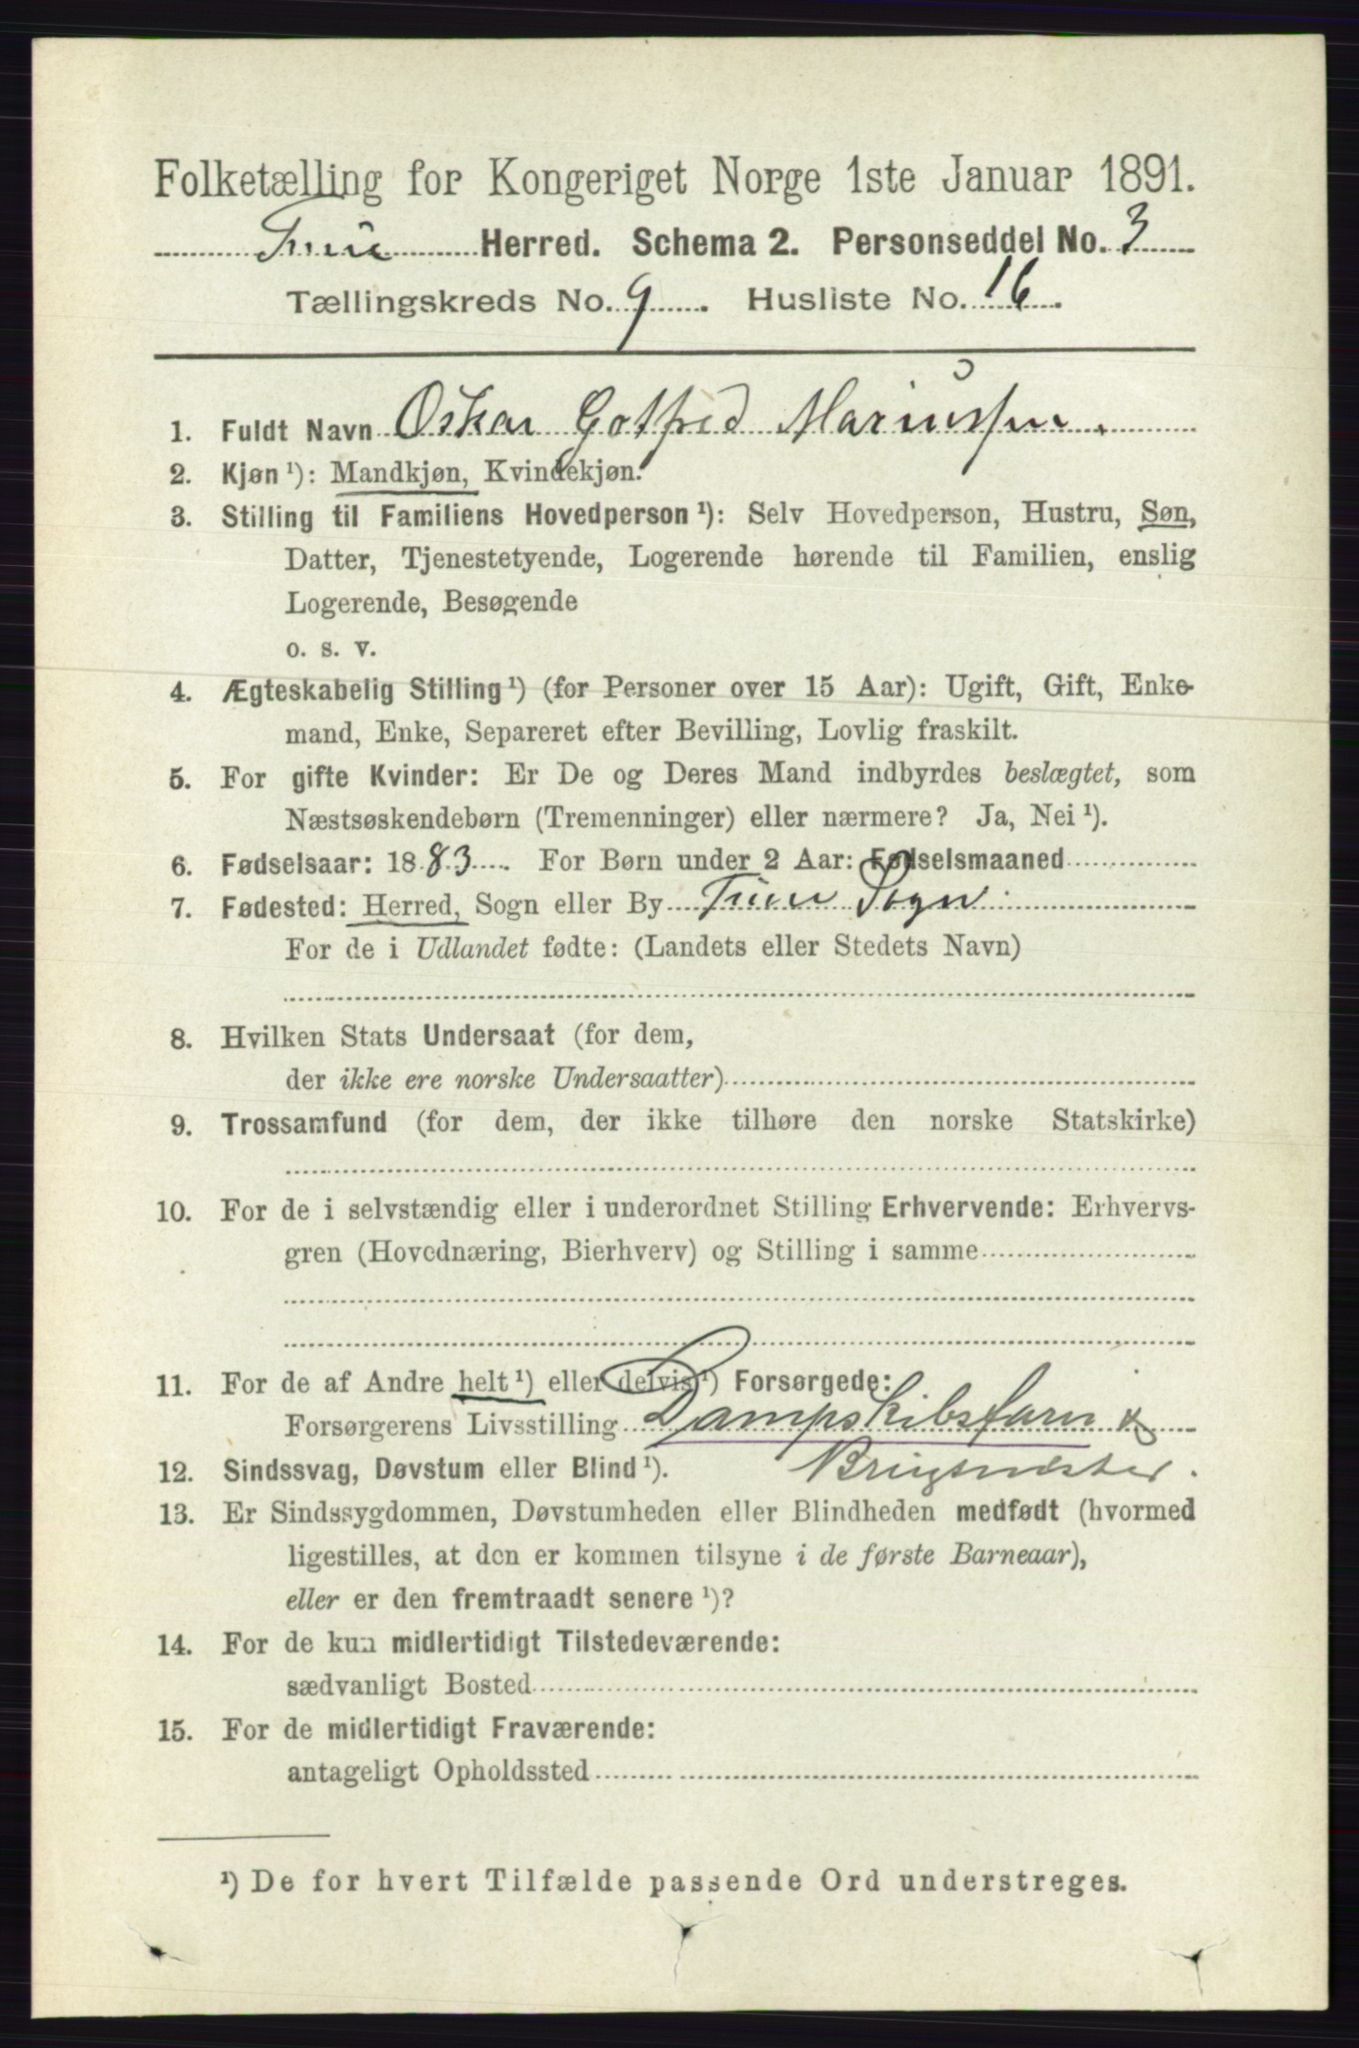 Folketælling for Kongeriget Norge 1ste Januar 1891.
Tune Herred. Schema 2. Personseddel No. 3
Tællingskreds No. 9. Husliste No. 16.
1. Fuldt Navn Oskar Gotfred Mariussen.
2. Kjøn ¹): Mandkjøn, Kvindekjøn.
3. Stilling til Familiens Hovedperson ¹): Selv Hovedperson, Hustru, Søn,
Datter, Tjenestetyende, Logerende hørende til Familien, enslig
Logerende, Besøgende
o. s. v.
4. Ægteskabelig Stilling ¹) (for Personer over 15 Aar): Ugift, Gift, Enke-
mand, Enke, Separeret efter Bevilling, Lovlig fraskilt.
5. For gifte Kvinder: Er De og Deres Mand indbyrdes beslægtet, som
Næstsøskendebørn (Tremenninger) eller nærmere? Ja, Nei ¹).
6. Fødselsaar: 1883. For Børn under 2 Aar: Fødselsmaaned
7. Fødested: Herred, Sogn eller By Tune Sogn.
For de i Udlandet fødte: (Landets eller Stedets Navn)
8. Hvilken Stats Undersaat (for dem,
der ikke ere norske Undersaatter)
9. Trossamfund (for dem, der ikke tilhøre den norske Statskirke)
10. For de i selvstændig eller i underordnet Stilling Erhvervende: Erhvervs-
gren (Hovednæring, Bierhverv) og Stilling i samme
11. For de af Andre helt ¹) eller delvis ¹) Forsørgede:
Forsørgerens Livsstilling Dampskibsfører &
12. Sindssvag, Døvstum eller Blind ¹). Brugsmester.
13. Er Sindssygdommen, Døvstumheden eller Blindheden medfødt (hvormed
ligestilles, at den er kommen tilsyne i de første Barneaar),
eller er den fremtraadt senere ¹)?
14. For de kun midlertidigt Tilstedeværende:
sædvanligt Bosted
15. For de midlertidigt Fraværende:
antageligt Opholdssted
¹) De for hvert Tilfælde passende Ord understreges.